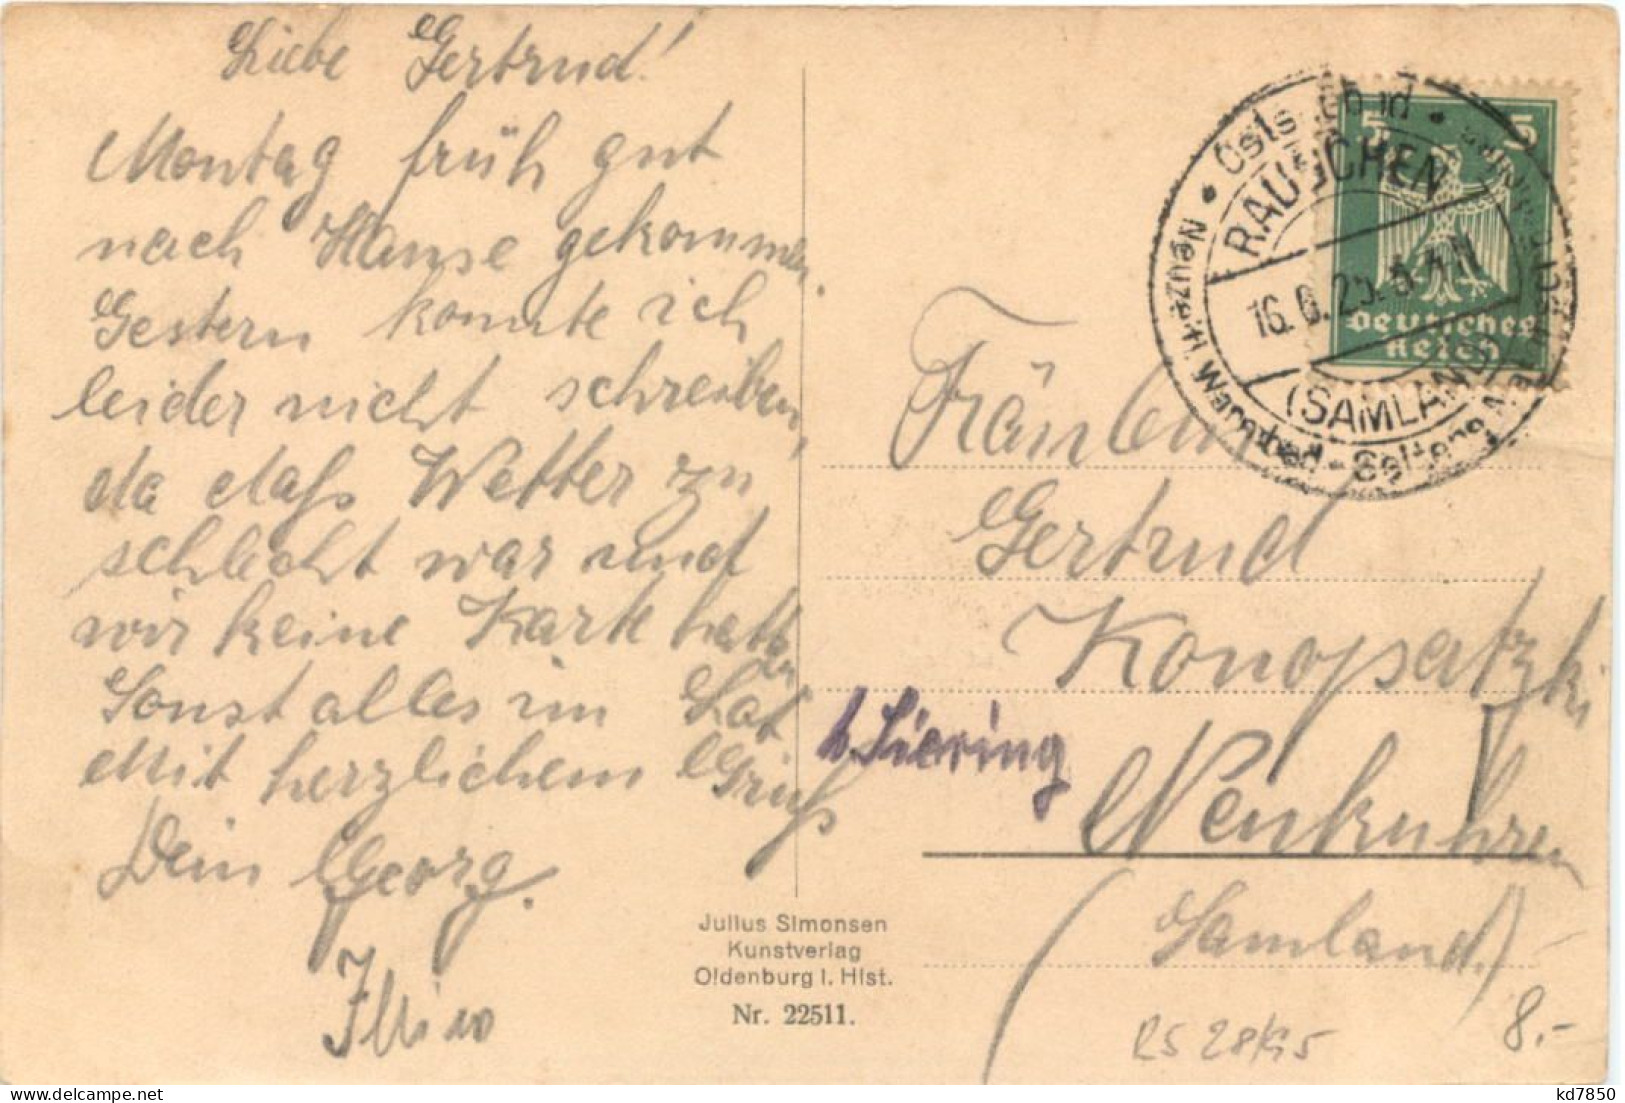 Liebe Gertrud!
Montag früh gut
nach Hause gekommen.
Gestern konnte ich
leider nicht schreiben,
da daß Wetter zu
schlecht war und
wir keine Karte hatten
Sonst alles im Lot
Mit herzlichem Gruß
Dein Georg.
Julius Simonsen
Kunstverlag
Oldenburg i. Hlst.
Nr. 22511.
5 5
Deutsches
Reich
RAUSCHEN
16. 6. 25.
(SAMLAND)
Neuzeit
Gertrud
Konopatzki
Neukuhren
(Samland.)
8.-
kd7850